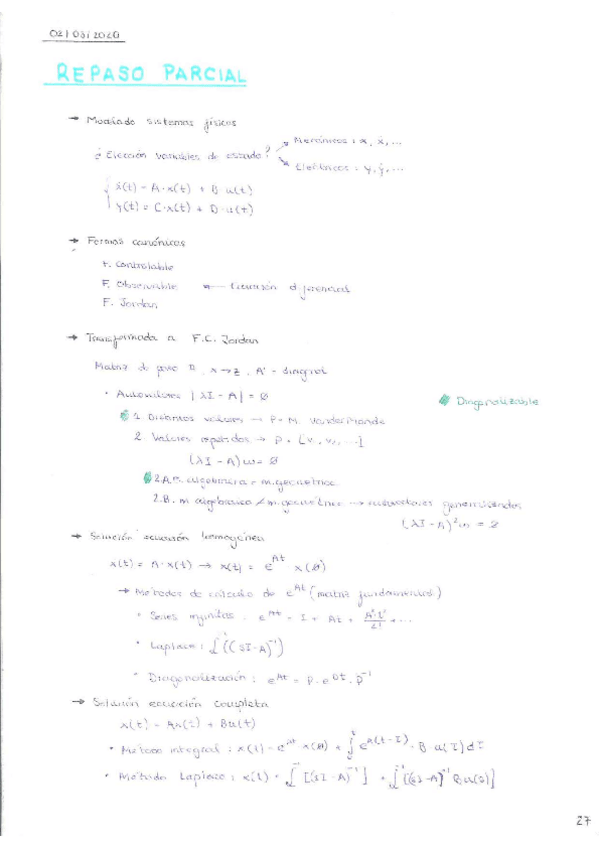 02/03/2020
REPASO PARCIAL
→ Modelado sistemas físicos
¿Elección variables de estado?
Mecánicos: x, ẋ, ...
Eléctricos: y, ẏ, ...
ẋ(t) = A·x(t) + B·u(t)
y(t) = C·x(t) + D·u(t)
→ Formas canónicas
F. Controlable
F. Observable ← Ecuación diferencial
F. Jordan
→ Transformada a F.C. Jordan
Matriz de paso P, x→z, A' = diagonal
· Autovalores |λI - A| = 0
Diagonalizable
1. Distintos valores → P = M. Vandermonde
2. Valores repetidos → P = [v, v₂, ...]
(λI - A)w = 0
2.A. m. algebraica = m. geométrica
2.B. m algebraica ≠ m. geométrica → autovectores generalizados
(λI - A)²w = 0
→ Solución ecuación homogénea
ẋ(t) = A·x(t) → x(t) = e^At x(0)
→ Métodos de cálculo de e^At (matriz fundamental)
· Series infinitas: e^At = I + At + A²·t²/2! + ...
· Laplace: L⁻¹((sI-A)⁻¹)
· Diagonalización: e^At = P·e^Dt·P⁻¹
→ Solución ecuación completa
ẋ(t) = Ax(t) + Bu(t)
· Método integral: x(t) = e^At x(0) + ∫ e^A(t-I)·B u(I)dI
· Método Laplace: x(t) = L⁻¹[(sI-A)⁻¹] + L⁻¹[(sI-A)⁻¹Bu(s)]
27